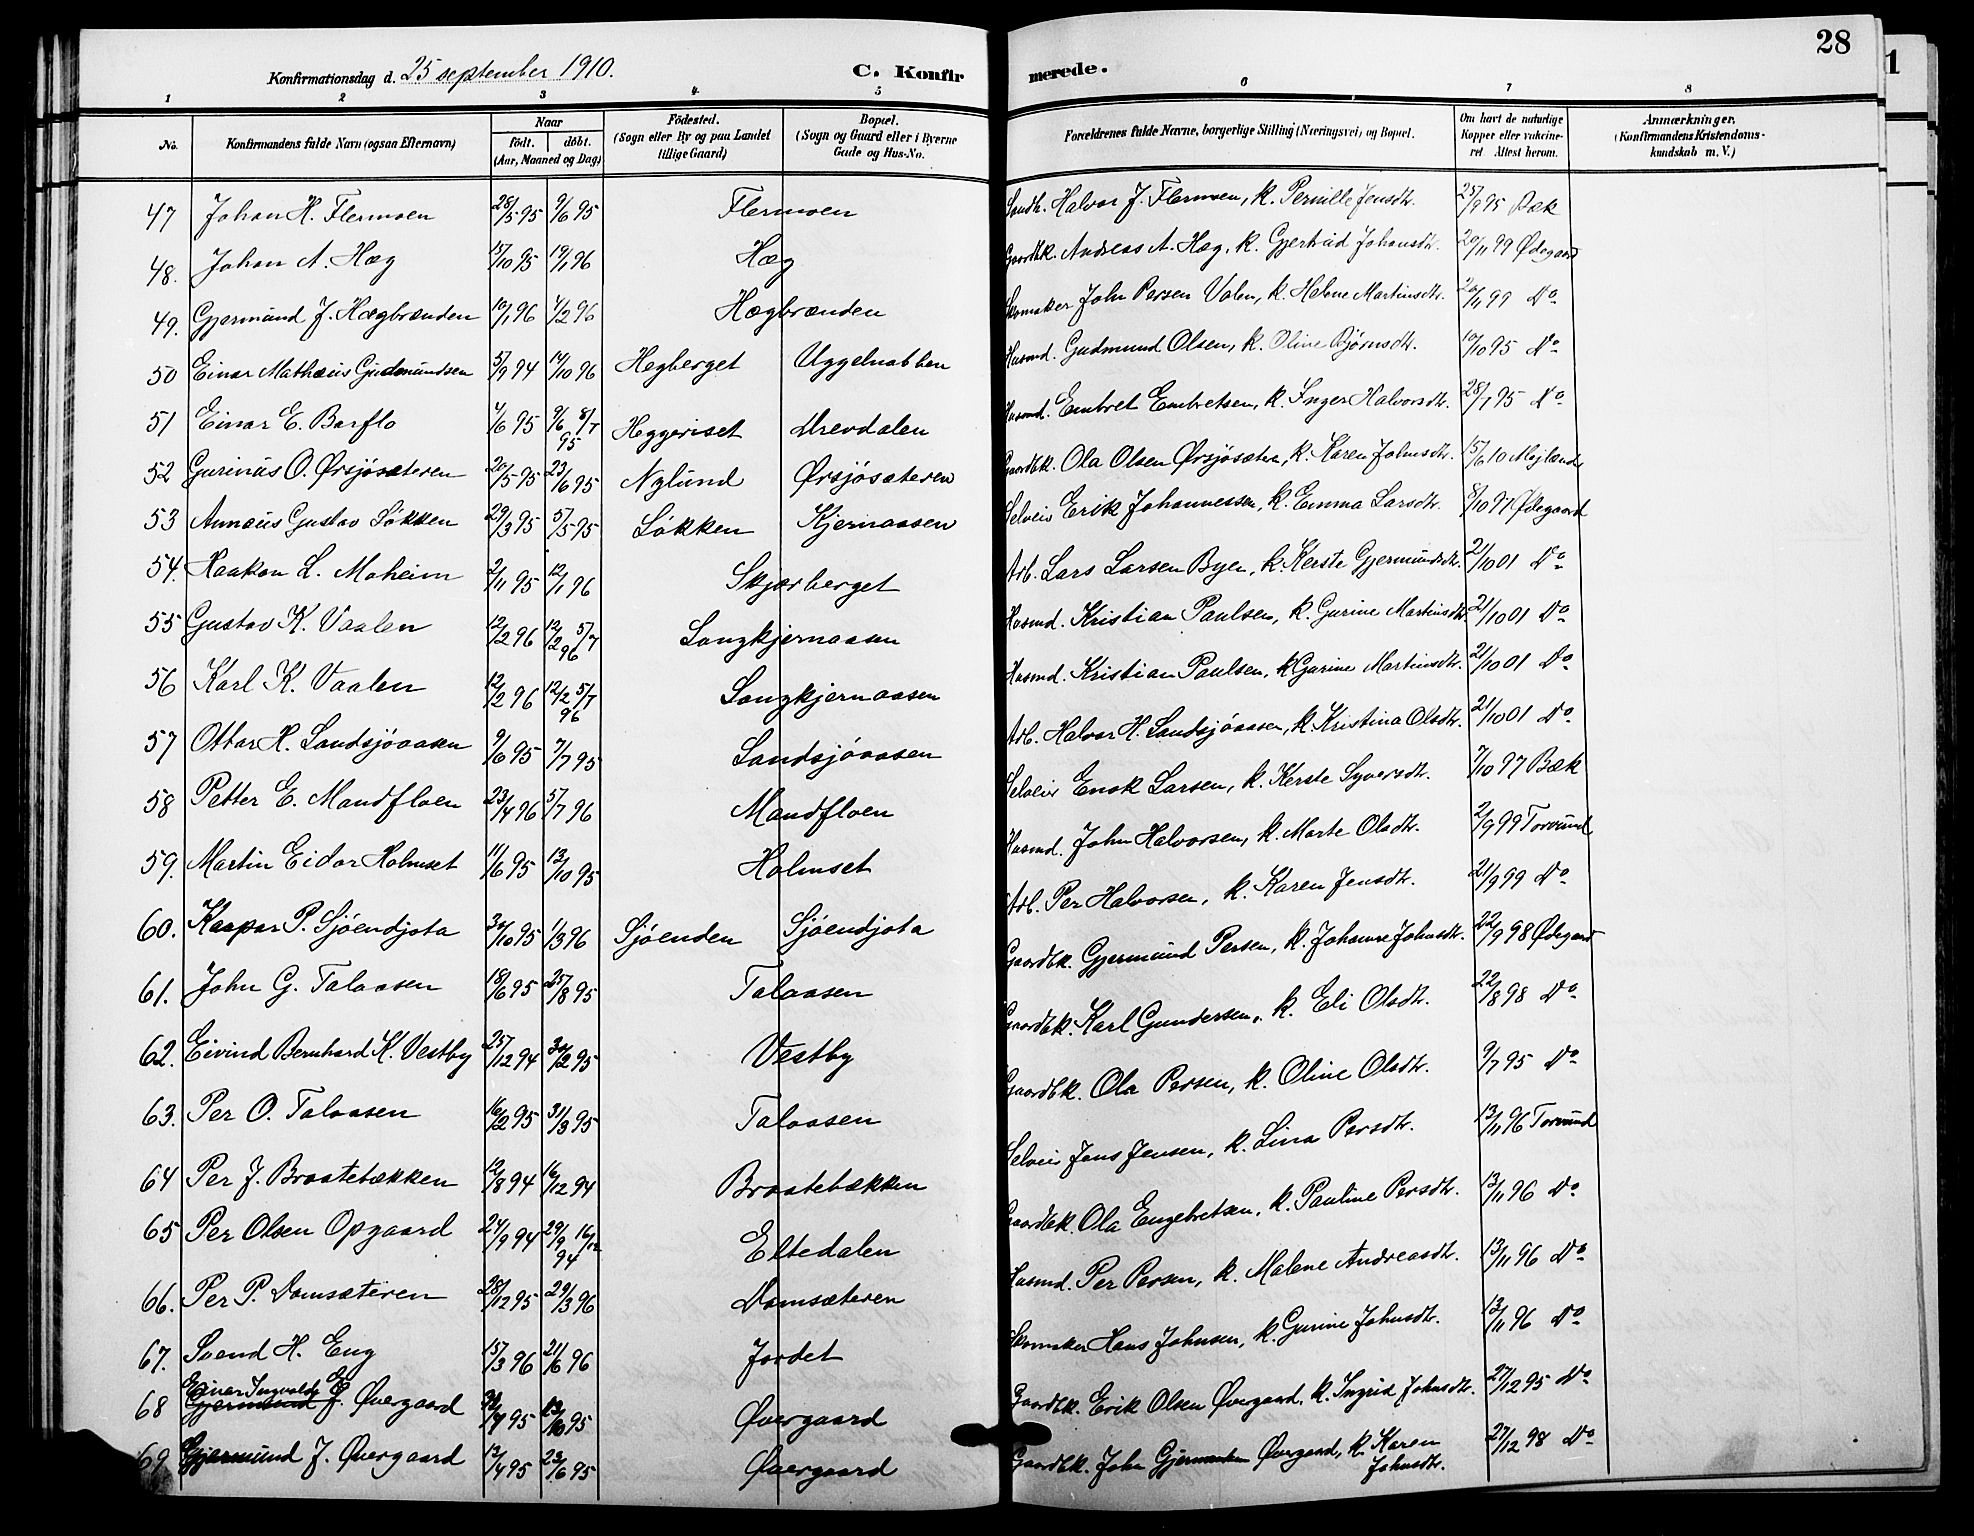 28
1
Konfirmationsdag d. 25 september 1910. C. Konfirmerede.
1 2 3 4 5 6 7 8
No. Konfirmandens fulde Navn (ogsaa Efternavn) Naar født. døbt. (Aar, Maaned og Dag) Fødested. (Sogn eller By og paa Landet tillige Gaard) Bopæl. (Sogn og Gaard eller i Byerne Gade og Hus-No. Forældrenes fulde Navne, borgerlige Stilling (Næringsvei) og Bopæl. Om havt de naturlige Kopper eller vakcineret. Attest herom. Anmærkninger. (Konfirmandens Kristendomskundskab m. V.)
47 Johan H. Flermoen 28/5 95 9/6 95 Flermoen Landh. Halvor J. Flermoen, k. Pernille Jensdtr. 25/9 95 Bæk
48. Johan A. Hæg 15/10 95 19/1 96 Hæg Gaardbk. Andreas A. Hæg, k. Gjertrud Johansdtr. 20/11 99 Ødegaard
49. Gjermund J. Hægbrænden 10/1 96 4/2 96 Hægbrænden Skomaker John Persen Valen, k. Helene Martinsdtr. 20/11 99 Do
50 Einar Mathæus Gudmundsen 5/9 94 14/10 96 Hegberget Uggelnabben Husmd. Gudmund Olsen, k. Oline Bjørnsdtr. 10/10 95 Do
51 Einar E. Barflo 4/6 95 9/6 8/7 95 Heggeriset Urevdalen Husmd. Embret Embretsen, k. Inger Halvorsdtr. 28/1 95 Do
52 Gurinus O. Ørsjøsæteren 20/5 95 23/6 95 Nylund Ørsjøsæteren Gaardbk. Ola Olsen Ørsjøsæter, k. Karen Johnsdtr. 15/6 10 Mojlænder
53 Annæus Gustav Løkken 29/3 95 5/5 95 Løkken Kjernaasen Selveier Erik Johannessen, k. Emma Larsdtr. 8/10 97 Ødegaard
54. Haakon L. Moheim 2/11 95 12/1 96 Skjærberget Arb. Lars Larsen Byen, k. Kerste Gjermundsdtr. 21/10 01 Do
55 Gustav K. Vaalen 12/2 96 12/2 5/7 96 Langkjernaasen Husmd. Kristian Paulsen, k. Gurine Martinsdtr. 21/10 01 Do
56 Karl K. Vaalen 12/2 96 12/2 5/7 96 Langkjernaasen Husmd. Kristian Paulsen, k Gurine Martinsdtr. 21/10 01 Do
57 Ottar H. Landsjøaasen 9/6 95 7/7 95 Landsjøaasen Arb. Halvor H. Landsjøaasen, k. Kristina Olsdtr. 21/10 01 Do
58 Petter E. Mandfloen 23/4 96 5/7 96 Mandfloen Selveier Enok Larsen, k. Kerste Syversdtr. 7/10 97 Bæk
59. Martin Eidar Holmset 11/6 95 13/10 95 Holmset Husmd. John Halvorsen, k. Marte Olsdtr. 2/9 99 Torvund
60. Kaspar P. Sjøendjota 30/10 95 1/3 96 Sjøenden Sjøendjota Arb. Per Halvorsen, k. Karen Jensdtr. 21/9 99 Do
61. John G. Talaasen 18/6 95 25/8 95 Talaasen Gaardbk. Gjermund Persen, k. Johanne Johnsdtr. 22/9 98 Ødegaard
62. Eivind Bernhard K. Vestby 25/12 94 30/12 95 Vestby Gaardbk. Karl Gundersen, k. Eli Olsdtr. 22/8 98 Do
63. Per O. Talaasen 16/2 95 31/3 95 Talaasen Gaardbk. Ola Persen, k. Oline Olsdtr. 9/7 95 Do
64 Per J. Braatebækken 12/8 94 16/12 94 Braatebækken Selveier Jens Jensen, k. Lina Persdtr. 13/11 96 Torvund
65 Per Olsen Opgaard 24/9 94 29/9 16/12 94 Eltedalen Gaardbk. Ola Engebretsen, k. Pauline Persdtr. 13/11 96 Do
66. Per P. Domsæteren 28/12 95 29/3 96 Domsæteren Husmd. Per Persen, k. Malene Andreasdtr. 13/11 96 Do
67. Svend H. Eng 15/3 96 21/6 96 Jordet Skomaker Hans Johnsen, k. Gurine Johnsdtr. 13/11 96 Do
68 Einar Ingvald E. Øvergaard 95 95 Øvergaard Gaardbk. Erik Olsen Øvergaard, k. Ingrid Johnsdtr. 27/12 95 Do
69 Gjermund J. Øvergaard 13/4 95 23/6 95 Øvergaard Gaardbk. John Gjermundsen Øvergaard, k. Karen Johnsdtr. 27/12 98 Do